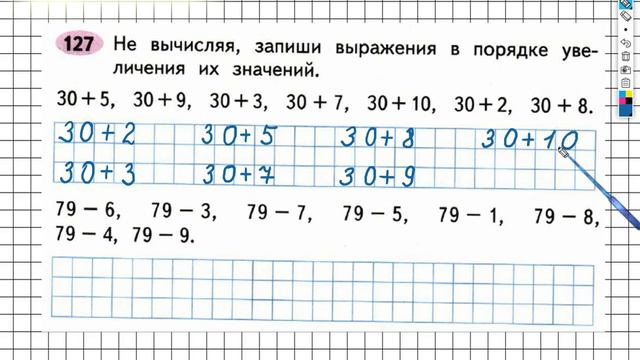 127 Не вычисляя, запиши выражения в порядке уве-
личения их значений.
30 + 5, 30 + 9, 30 + 3, 30 + 7, 30 + 10, 30 + 2, 30 + 8.
30+2 30+5 30+8 30+10
30+3 30+7 30+9
79 − 6, 79 − 3, 79 − 7, 79 − 5, 79 − 1, 79 − 8,
79 − 4, 79 − 9.